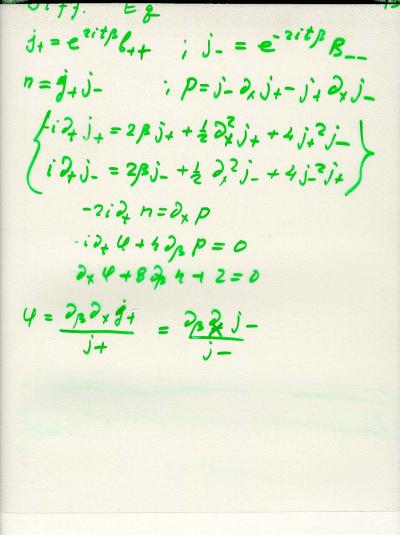 Diff. Eq
j₊ = e^{2itβ} b₊₊ ; j₋ = e^{-2itβ} B₋₋
n = j₊j₋ ; p = j₋ ∂ₓ j₊ - j₊ ∂ₓ j₋
{ -i∂ₜ j₊ = 2βj₊ + ½ ∂ₓ² j₊ + 4j₊² j₋
i∂ₜ j₋ = 2βj₋ + ½ ∂ₓ² j₋ + 4j₋² j₊ }
-2i∂ₜ n = ∂ₓ p
-i∂ₜ φ + 4∂_β p = 0
∂ₓ φ + 8∂_β n + 2 = 0
φ = ∂_β ∂ₓ j₊ / j₊ = ∂_β ∂ₓ j₋ / j₋